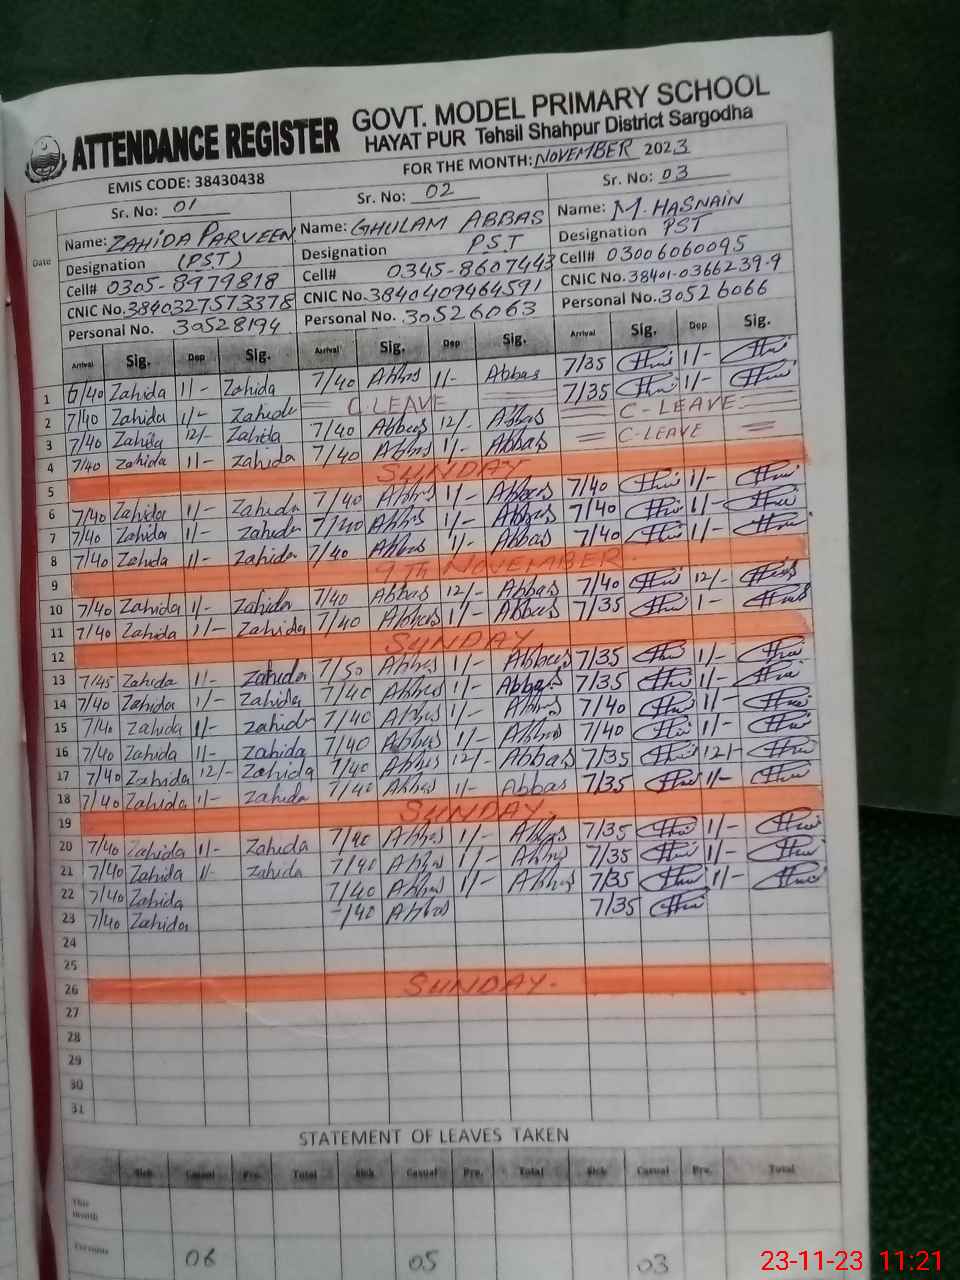 ATTENDANCE REGISTER GOVT. MODEL PRIMARY SCHOOL
HAYAT PUR Tehsil Shahpur District Sargodha
EMIS CODE: 38430438 FOR THE MONTH: NOVEMBER 2023
Sr. No: 01 Sr. No: 02 Sr. No: 03
Date
Name: ZAHIDA PARVEEN Name: GHULAM ABBAS Name: M. HASNAIN
Designation (PST) Designation PST Designation PST
Cell# 0305-8979818 Cell# 0345-8607443 Cell# 03006060095
CNIC No. 3840327573378 CNIC No. 3840409464591 CNIC No. 38401-0366239-9
Personal No. 30528194 Personal No. 30526063 Personal No. 30526066
Arrival Sig. Dep Sig. Arrival Sig. Dep Sig. Arrival Sig. Dep Sig.
1 7/40 Zahida 1/- Zahida 7/40 Abbas 1/- Abbas 7/35 1/-
2 7/40 Zahida 1/- Zahida C.LEAVE 7/35 1/-
3 7/40 Zahida 12/- Zahida 7/40 Abbas 12/- Abbas C-LEAVE
4 7/40 Zahida 1/- Zahida 7/40 Abbas 1/- Abbas C-LEAVE
5 SUNDAY
6 7/40 Zahida 1/- Zahida 7/40 Abbas 1/- Abbas 7/40 1/-
7 7/40 Zahida 1/- Zahida 7/40 Abbas 1/- Abbas 7/40 1/-
8 7/40 Zahida 1/- Zahida 7/40 Abbas 1/- Abbas 7/40 1/-
9 9TH NOVEMBER.
10 7/40 Zahida 1/- Zahida 7/40 Abbas 12/- Abbas 7/40 12/-
11 7/40 Zahida 1/- Zahida 7/40 Abbas 1/- Abbas 7/35 1-
12 SUNDAY.
13 7/45 Zahida 1/- Zahida 7/50 Abbas 1/- Abbas 7/35 1/-
14 7/40 Zahida 1/- Zahida 7/40 Abbas 1/- Abbas 7/35 1/-
15 7/40 Zahida 1/- Zahida 7/40 Abbas 1/- Abbas 7/40 1/-
16 7/40 Zahida 1/- Zahida 7/40 Abbas 1/- Abbas 7/40 1/-
17 7/40 Zahida 12/- Zahida 7/40 Abbas 12/- Abbas 7/35 12/-
18 7/40 Zahida 1/- Zahida 7/40 Abbas 1/- Abbas 7/35 1/-
19 SUNDAY.
20 7/40 Zahida 1/- Zahida 7/40 Abbas 1/- Abbas 7/35 1/-
21 7/40 Zahida 1/- Zahida 7/40 Abbas 1/- Abbas 7/35 1/-
22 7/40 Zahida 7/40 Abbas 1/- Abbas 7/35 1/-
23 7/40 Zahida 7/40 Abbas 7/35
24
25
26 SUNDAY.
27
28
29
30
31
STATEMENT OF LEAVES TAKEN
Sick Casual Pre. Total Sick Casual Pre. Total Sick Casual Pre. Total
This month
Previous 06 05 03
23-11-23 11:21